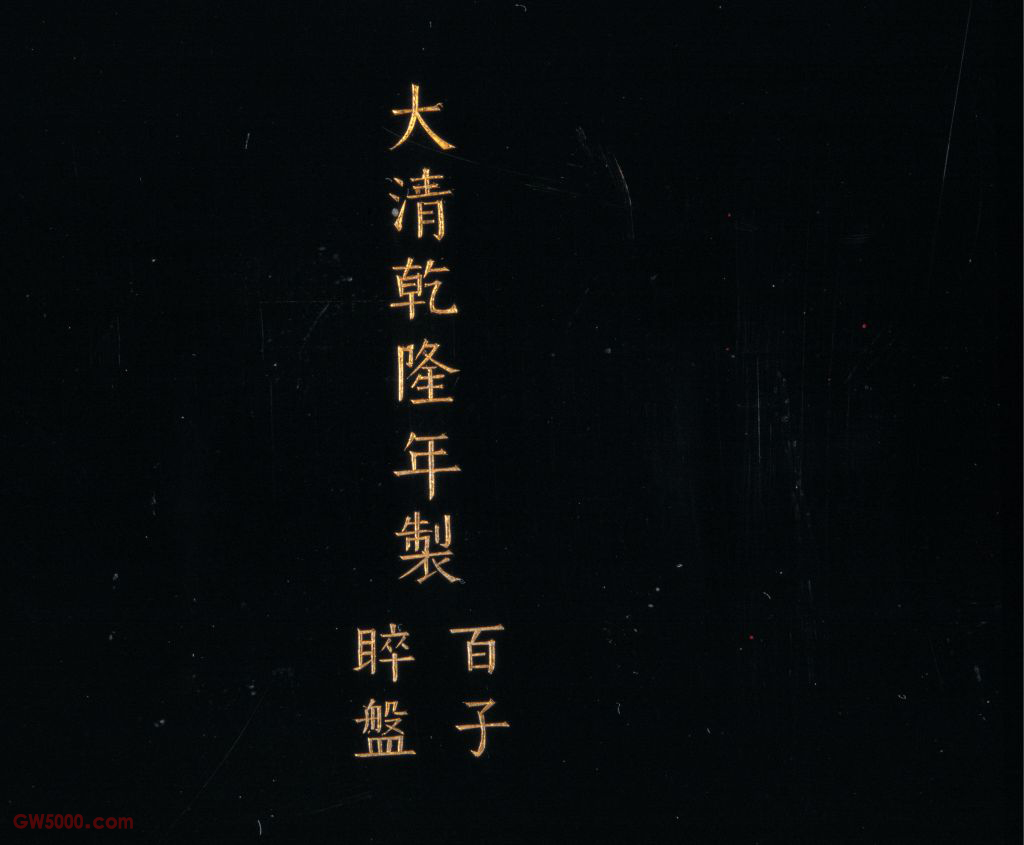 大清乾隆年製
百子
晬盤
GW5000.com